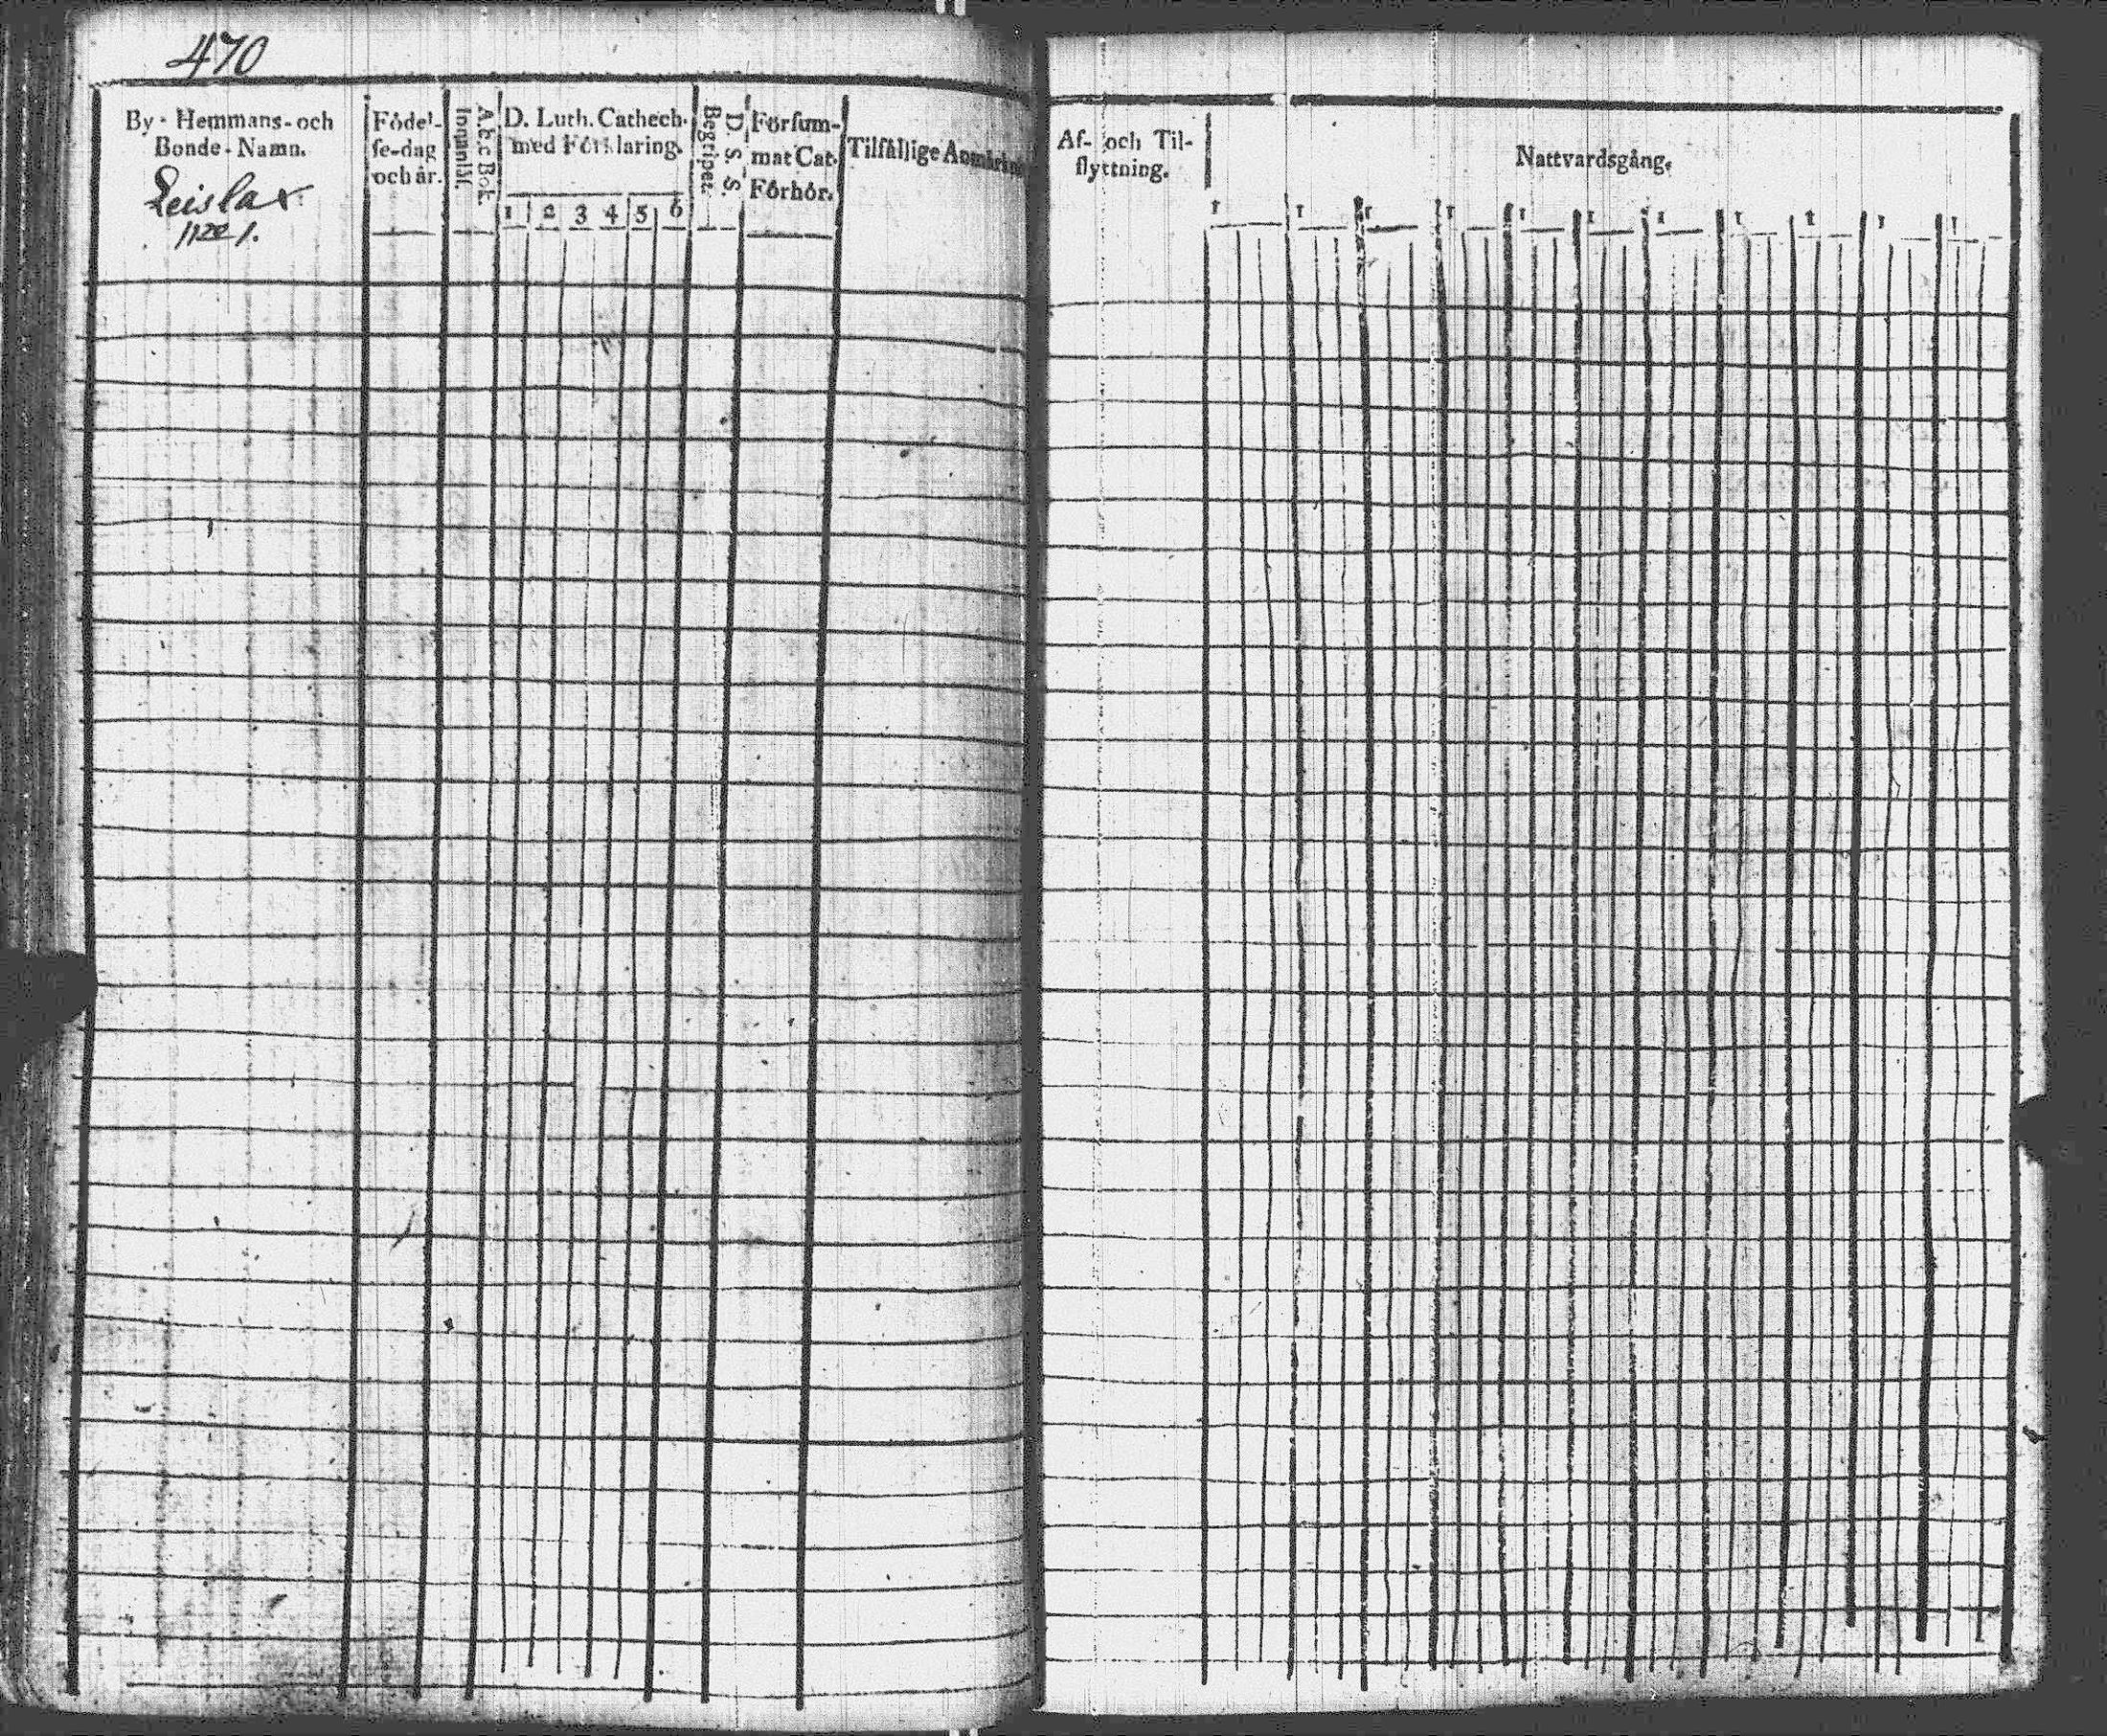 470
By- Hemmans- och
Bonde-Namn.
Leislax
Födel-
se-dag
och år.
A.b.c Bok
Innanläs.
D. Luth. Cathech.
med Förklaring.
1 2 3 4 5 6
D. S. S.
Begriper.
Försum-
mat Cat.
Förhör.
Tilfällige Anmärkn
Af- och Til-
flyttning.
Nattvardsgång.
1 1 1 1 1 1 1 1 1 1 1